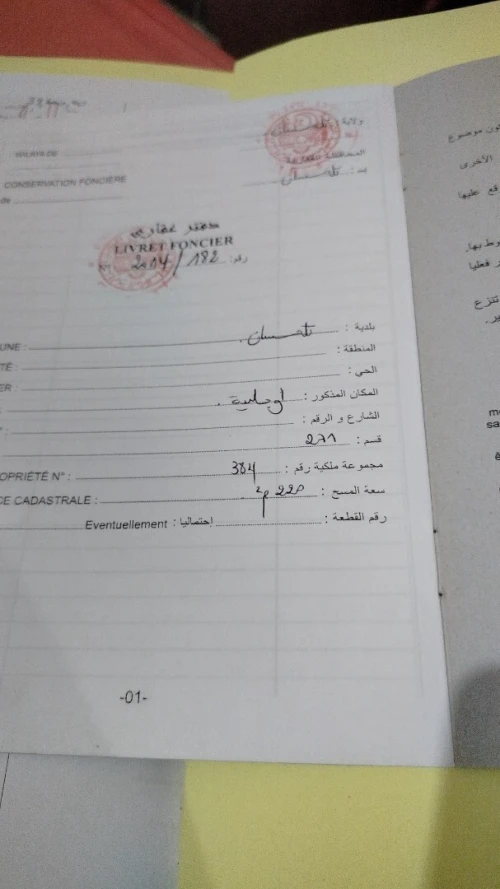 ولاية : تلمسان
WILAYA DE
المحافظة العقارية
CONSERVATION FONCIÈRE
بـ : تلمسان
de
دفتر عقاري
LIVRET FONCIER
رقم: 182/2004
بلدية : تلمسان
UNE :
المنطقة :
TÉ :
الحي :
ER :
المكان المذكور : أوجليدة
الشارع و الرقم :
قسم : 271
مجموعة ملكية رقم : 384
OPRIÉTÉ N° :
سعة المسح : 220 م²
CE CADASTRALE :
رقم القطعة : إحتماليا : Eventuellement
-01-
موضوع
الأخرى
قع عليها
وط بها.
فعليا
تنزع